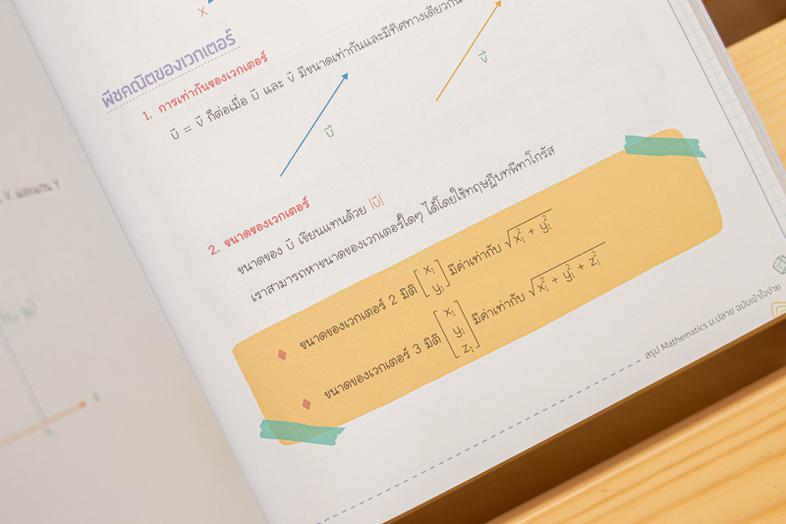 X
พีชคณิตของเวกเตอร์
1. การเท่ากันของเวกเตอร์
ū = v̄ ก็ต่อเมื่อ ū และ v̄ มีขนาดเท่ากันและมีทิศทางเดียวกัน
ū
v̄
2. ขนาดของเวกเตอร์
ขนาดของ ū เขียนแทนด้วย |ū|
เราสามารถหาขนาดของเวกเตอร์ใดๆ ได้โดยใช้ทฤษฎีบทพีทาโกรัส
ขนาดของเวกเตอร์ 2 มิติ [x₁ y₁] มีค่าเท่ากับ √(x₁² + y₁²)
ขนาดของเวกเตอร์ 3 มิติ [x₁ y₁ z₁] มีค่าเท่ากับ √(x₁² + y₁² + z₁²)
สรุป Mathematics ม.ปลาย ฉบับเข้าใจง่าย